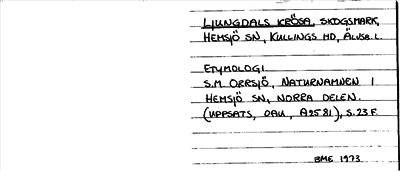 LJUNGDALS KRÖSA, SKOGSMARK,
HEMSJÖ SN, KULLINGS HD, ÄLVSB. L.
ETYMOLOGI.
S.M. ORRSJÖ, NATURNAMNEN I
HEMSJÖ SN, NORRA DELEN.
(UPPSATS, OAU, A2581), S. 23 F.
BME 1973